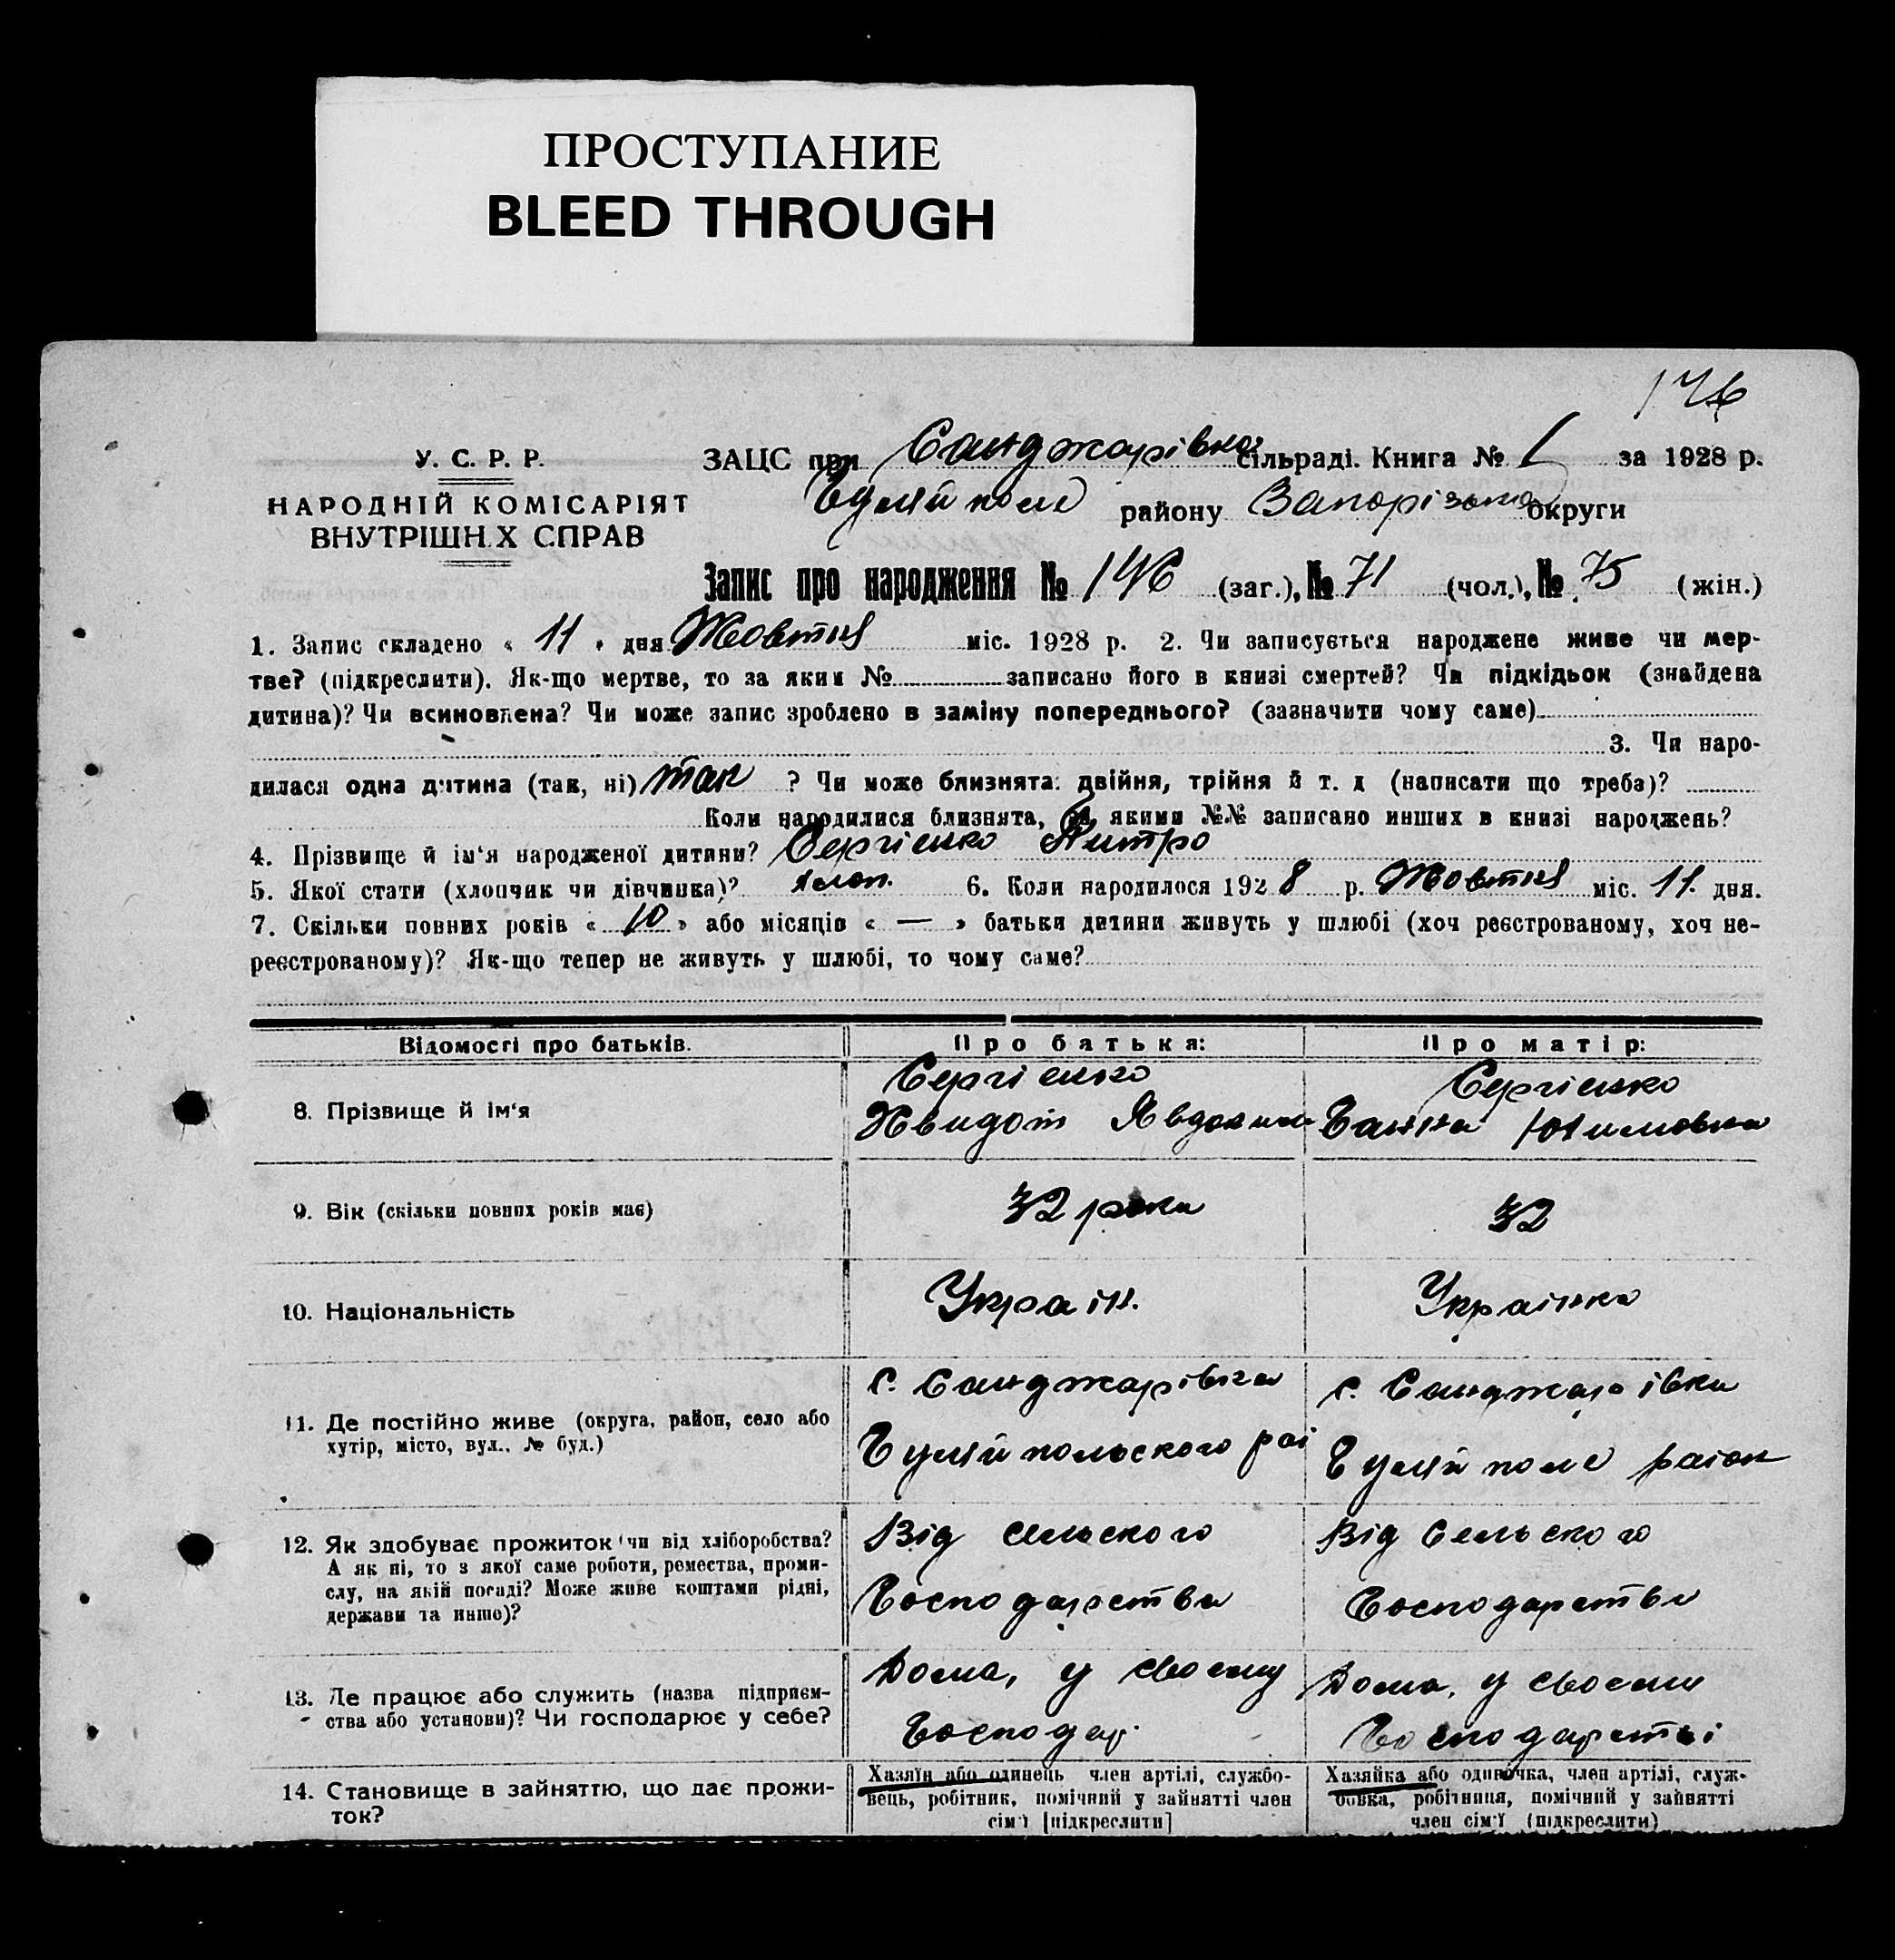 ПРОСТУПАНИЕ
BLEED THROUGH
146
У. С. Р. Р.
НАРОДНІЙ КОМІСАРІЯТ
ВНУТРІШН.Х СПРАВ
ЗАЦС при Санджарівка сільраді. Книга № 1 за 1928 р.
Гуляй поле району Запорізька округи
Запис про народження № 146 (заг.), № 71 (чол.), № 75 (жін.)
1. Запис складено « 11 » дня Жовтня міс. 1928 р. 2. Чи записується народжене живе чи мер-
тве? (підкреслити). Як-що мертве, то за яким № записано його в книзі смертей? Чи підкідьок (знайдена
дитина)? Чи всиновлена? Чи може запис зроблено в заміну попереднього? (зазначити чому саме)
3. Чи наро-
дилася одна дитина (так, ні) так ? Чи може близнята: двійня, трійня й т. д (написати що треба)?
Коли народилися близнята, за якими №№ записано инших в книзі народжень?
4. Прізвище й ім'я народженої дитини? Сергієнко Питро
5. Якої стати (хлопчик чи дівчинка)? хлоп. 6. Коли народилося 1928 р. Жовтня міс. 11 дня.
7. Скільки повних років « 10 » або місяців « — » батьки дитини живуть у шлюбі (хоч реєстрованому, хоч не-
реєстрованому)? Як-що тепер не живуть у шлюбі, то чому саме?
Відомості про батьків.
Про батька:
Про матір:
8. Прізвище й ім'я
Сергієнко
Сергієнко
Ганна
9. Вік (скільки повних років має)
32 роки
32
10. Національність
Україн.
Українка
11. Де постійно живе (округа, район, село або
хутір, місто, вул., № буд.)
с. Санджарівка
Гуляйпольского рай
с. Санджарівка
Гуляй поле район
12. Як здобуває прожиток (чи від хліборобства?
А як ні, то з якої саме роботи, ремества, проми-
слу, на якій посаді? Може живе коштами рідні,
держави та инше)?
Від сельского
Господарства
Від Сельского
Господарства
13. Де працює або служить (назва підприєм-
ства або установи)? Чи господарює у себе?
Дома, у своему
Господар.
Дома, у своем
Господарстві
14. Становище в зайняттю, що дає прожи-
ток?
Хазяїн або одинець член артілі, службо-
вець, робітник, помічний у зайнятті член
сім'ї [підкреслити]
Хазяйка або одиночка, член артілі, служ-
бовка, робітниця, помічний у зайнятті
член сім'ї (підкреслити)